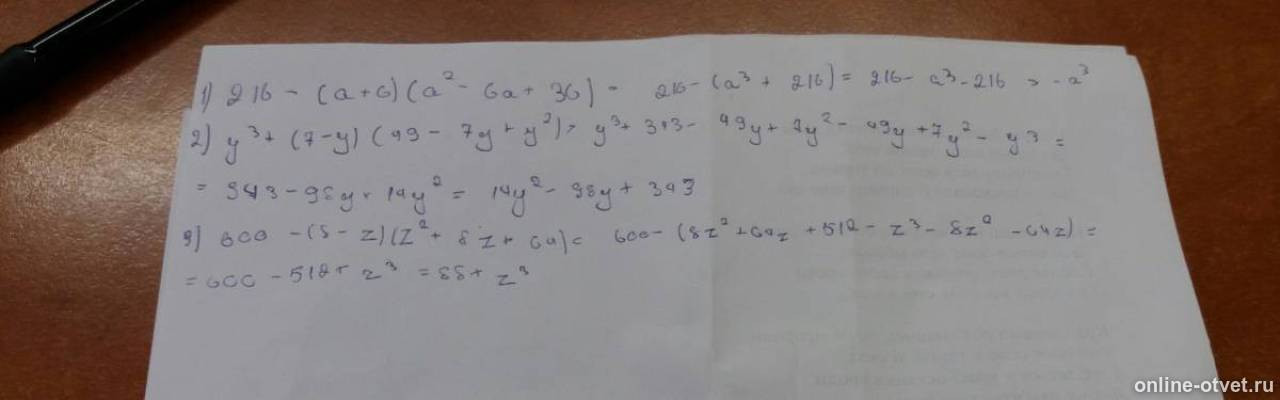 1) 216 - (a+6)(a² - 6a + 36) = 216 - (a³ + 216) = 216 - a³ - 216 = -a³
2) y³ + (7-y)(49 - 7y + y²) = y³ + 343 - 49y + 7y² - 49y + 7y² - y³ =
= 343 - 98y + 14y² = 14y² - 98y + 343
3) 600 - (8 - z)(z² + 8z + 64) = 600 - (8z² + 64z + 512 - z³ - 8z² - 64z) =
= 600 - 512 + z³ = 88 + z³
online-otvet.ru